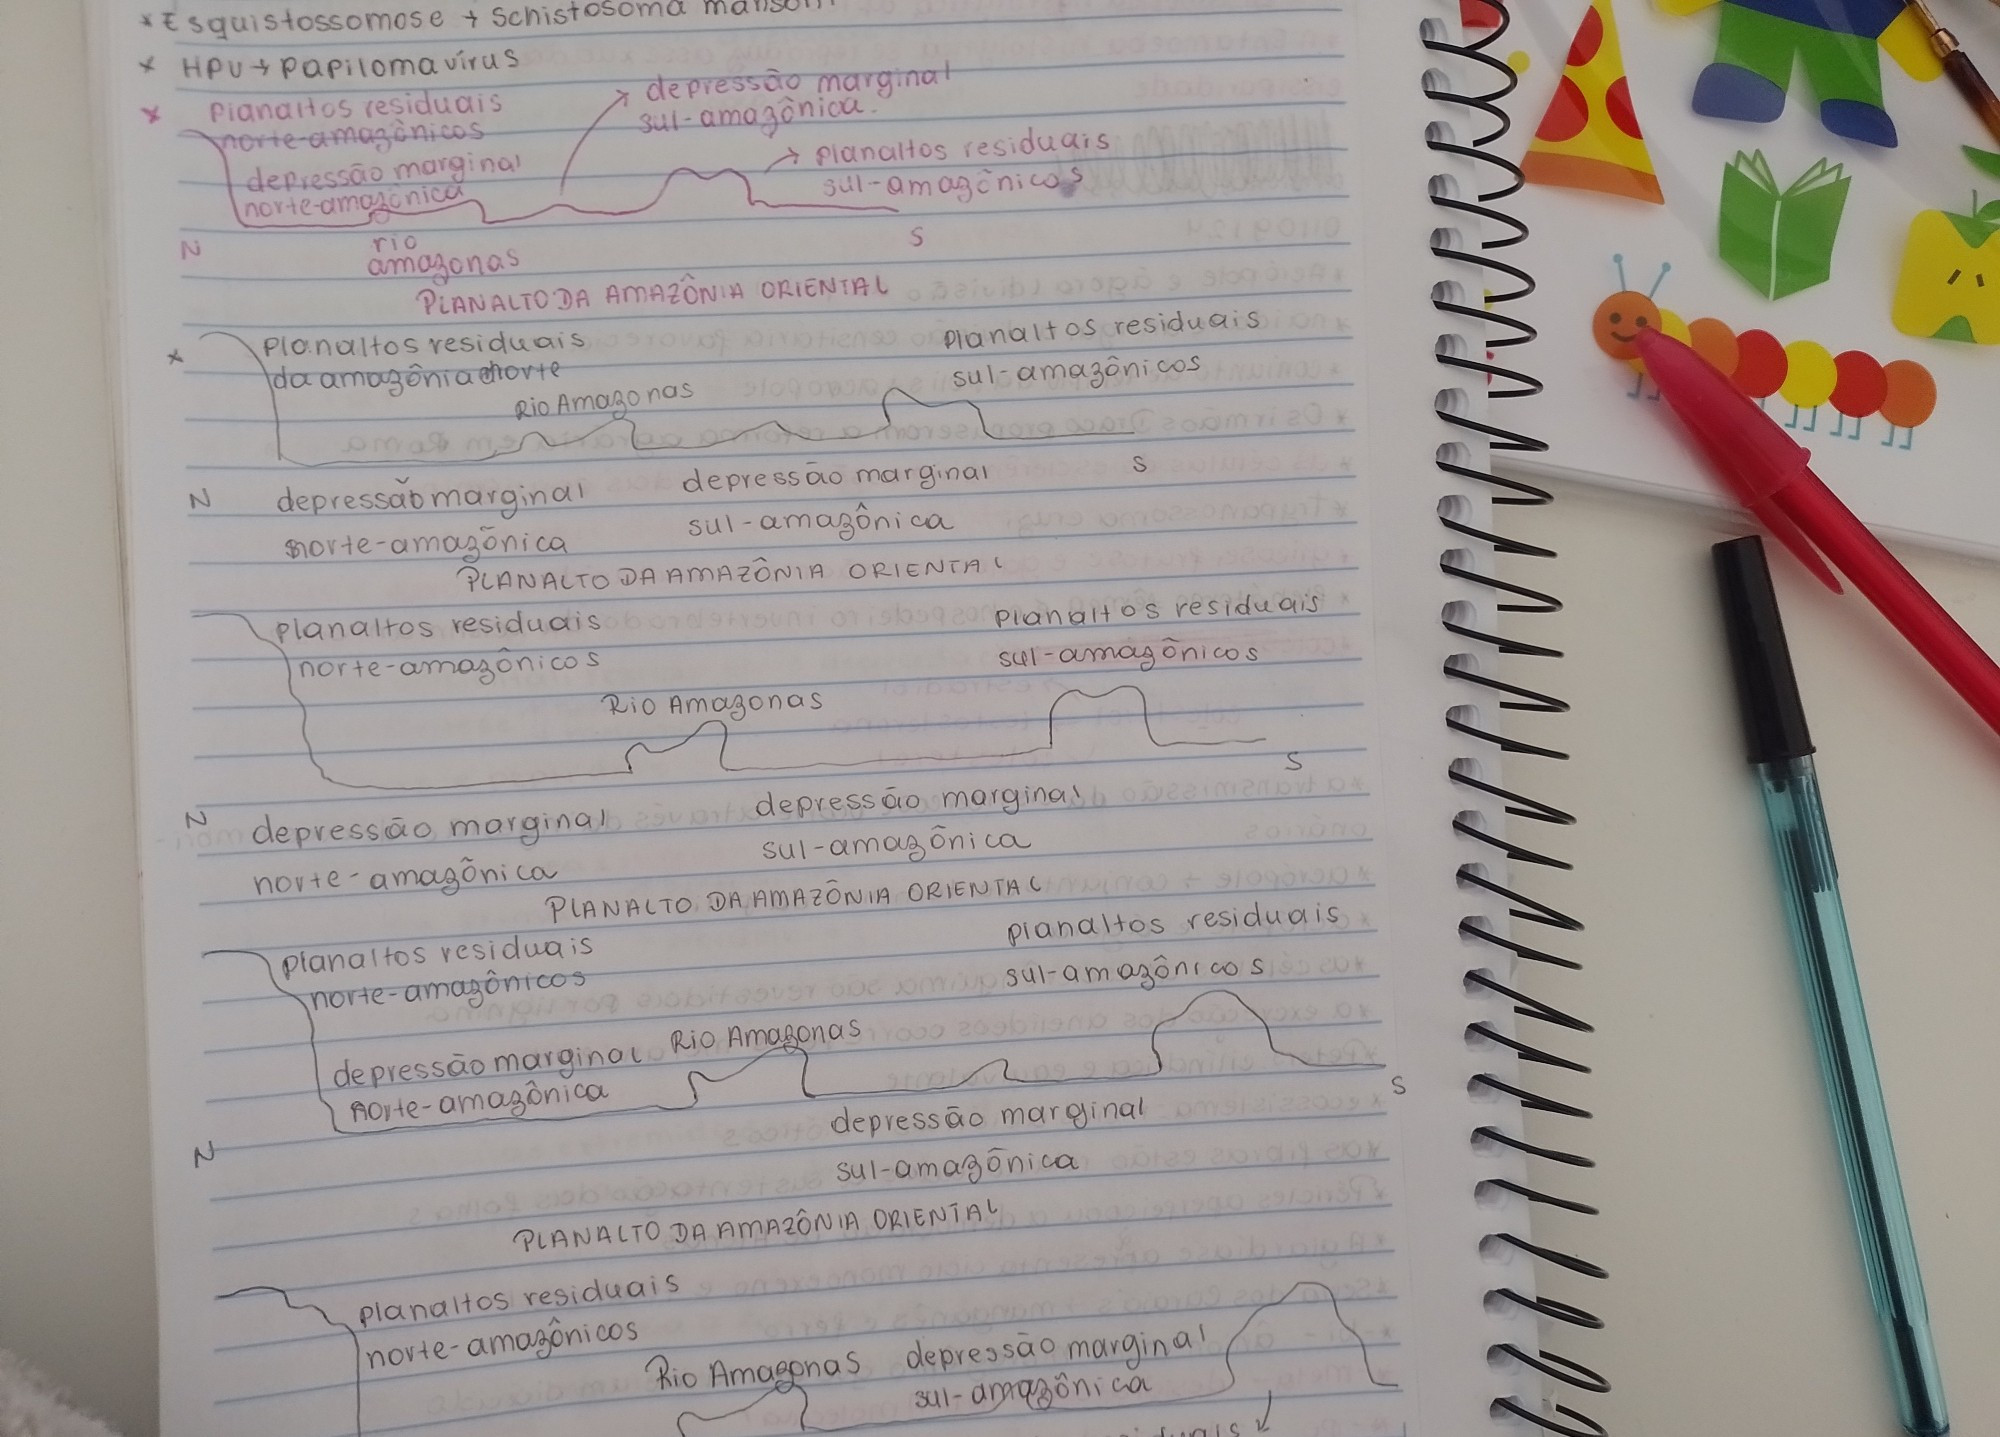 * Esquistossomose → Schistosoma mansoni
* HPV → papilomavírus
* planaltos residuais
norte-amazônicos
depressão marginal
norte-amazônica
depressão marginal
sul-amazônica.
planaltos residuais
sul-amazônicos
N
rio
amazonas
S
PLANALTO DA AMAZÔNIA ORIENTAL
* planaltos residuais
da amazônia norte
Rio Amazonas
planaltos residuais
sul-amazônicos
N
depressão marginal
norte-amazônica
depressão marginal
sul-amazônica
S
PLANALTO DA AMAZÔNIA ORIENTAL
planaltos residuais
norte-amazônicos
Rio Amazonas
planaltos residuais
sul-amazônicos
N
depressão marginal
norte-amazônica
depressão marginal
sul-amazônica
S
PLANALTO DA AMAZÔNIA ORIENTAL
planaltos residuais
norte-amazônicos
planaltos residuais
sul-amazônicos
depressão marginal
norte-amazônica
Rio Amazonas
N
depressão marginal
sul-amazônica
S
PLANALTO DA AMAZÔNIA ORIENTAL
planaltos residuais
norte-amazônicos
Rio Amazonas
depressão marginal
sul-amazônica